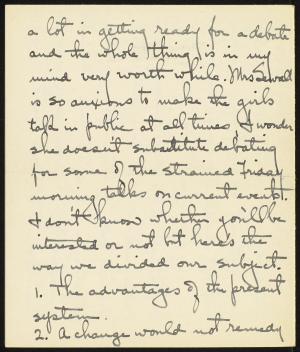 a lot in getting ready for a debate
and the whole thing is in my
mind very worth while. Mrs Sewall
is so anxious to make the girls
talk in public at all times I wonder
she doesn't substitute debating
for some of the strained Friday
morning talks on current events.
I don't know whether you'll be
interested or not but here's the
way we divided our subject.
1. The advantages of the present
system.
2. A change would not remedy